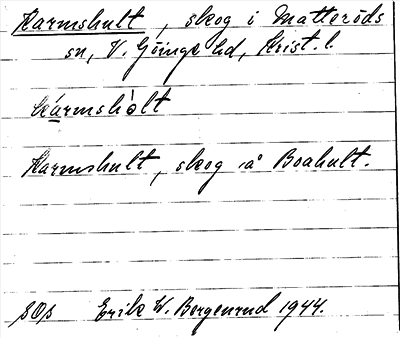 Karmshult, skog i Matteröds
sn, V. Göinge hd, Krist. l.
kármshòlt
Karmshult, skog å Boahult.
SOs Erik W. Bergenrud 1944.